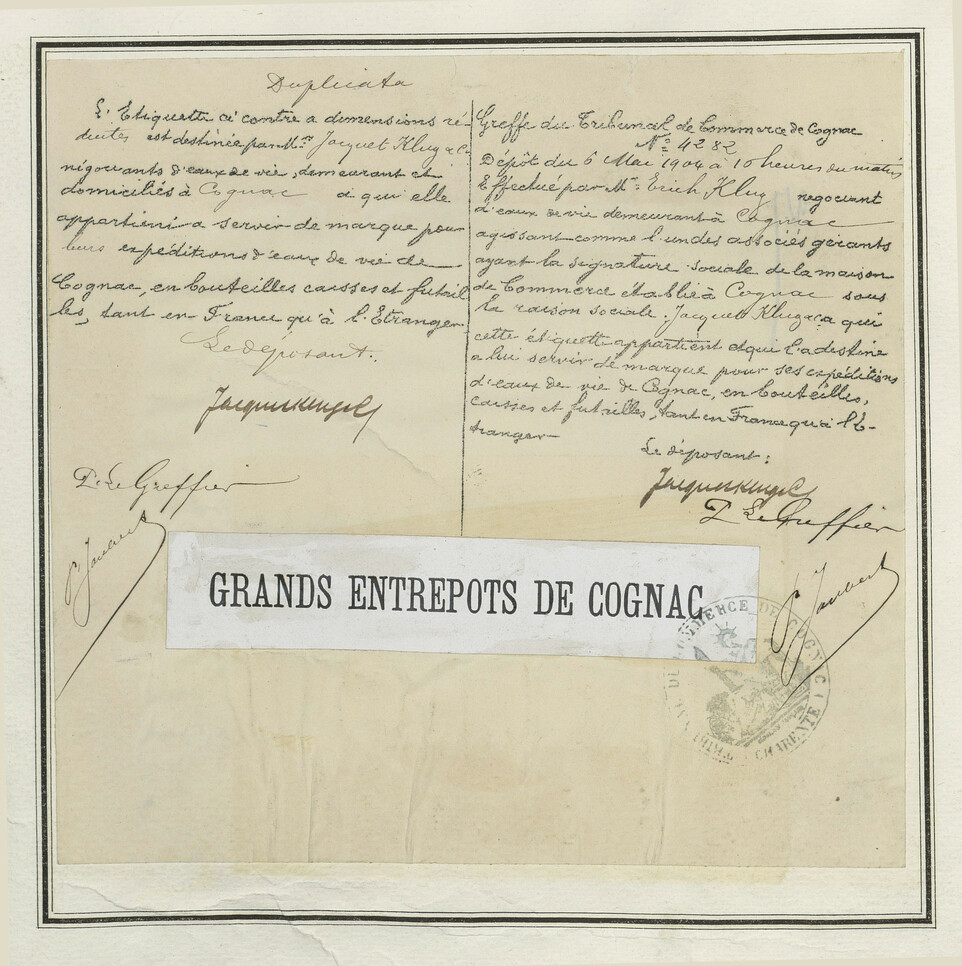 Duplicata
L'Etiquette ci contre a dimensions ré-
duites est destinée par Mrs Jacquet Klug & Cie
négociants d'eaux de vie, demeurant et
domiciliés à Cognac à qui elle
appartient a servir de marque pour
leurs expéditions d'eaux de vie de
Cognac, en bouteilles caisses et futail
les, tant en France qu'à l'Etranger
Le déposant:
P. Le Greffier
Greffe du Tribunal de Commerce de Cognac
No 4282
Dépôt du 6 Mai 1904 à 10 heures du matin
Effectué par Mr Erich Klug négociant
d'eaux de vie demeurant à Cognac
agissant comme l'un des associés gérants
ayant la signature sociale de la maison
de Commerce établie à Cognac sous
la raison sociale: Jacquet Klug & Cie à qui
cette étiquette appartient et qui l'a destine
a lui servir de marque pour ses expéditions
d'eaux de vie de Cognac, en bouteilles,
caisses et futailles, tant en France qu'à l'E-
tranger
Le déposant:
P. Le Greffier
P. Jaubert
GRANDS ENTREPOTS DE COGNAC
COMMERCE DE COGNAC
CHARENTE